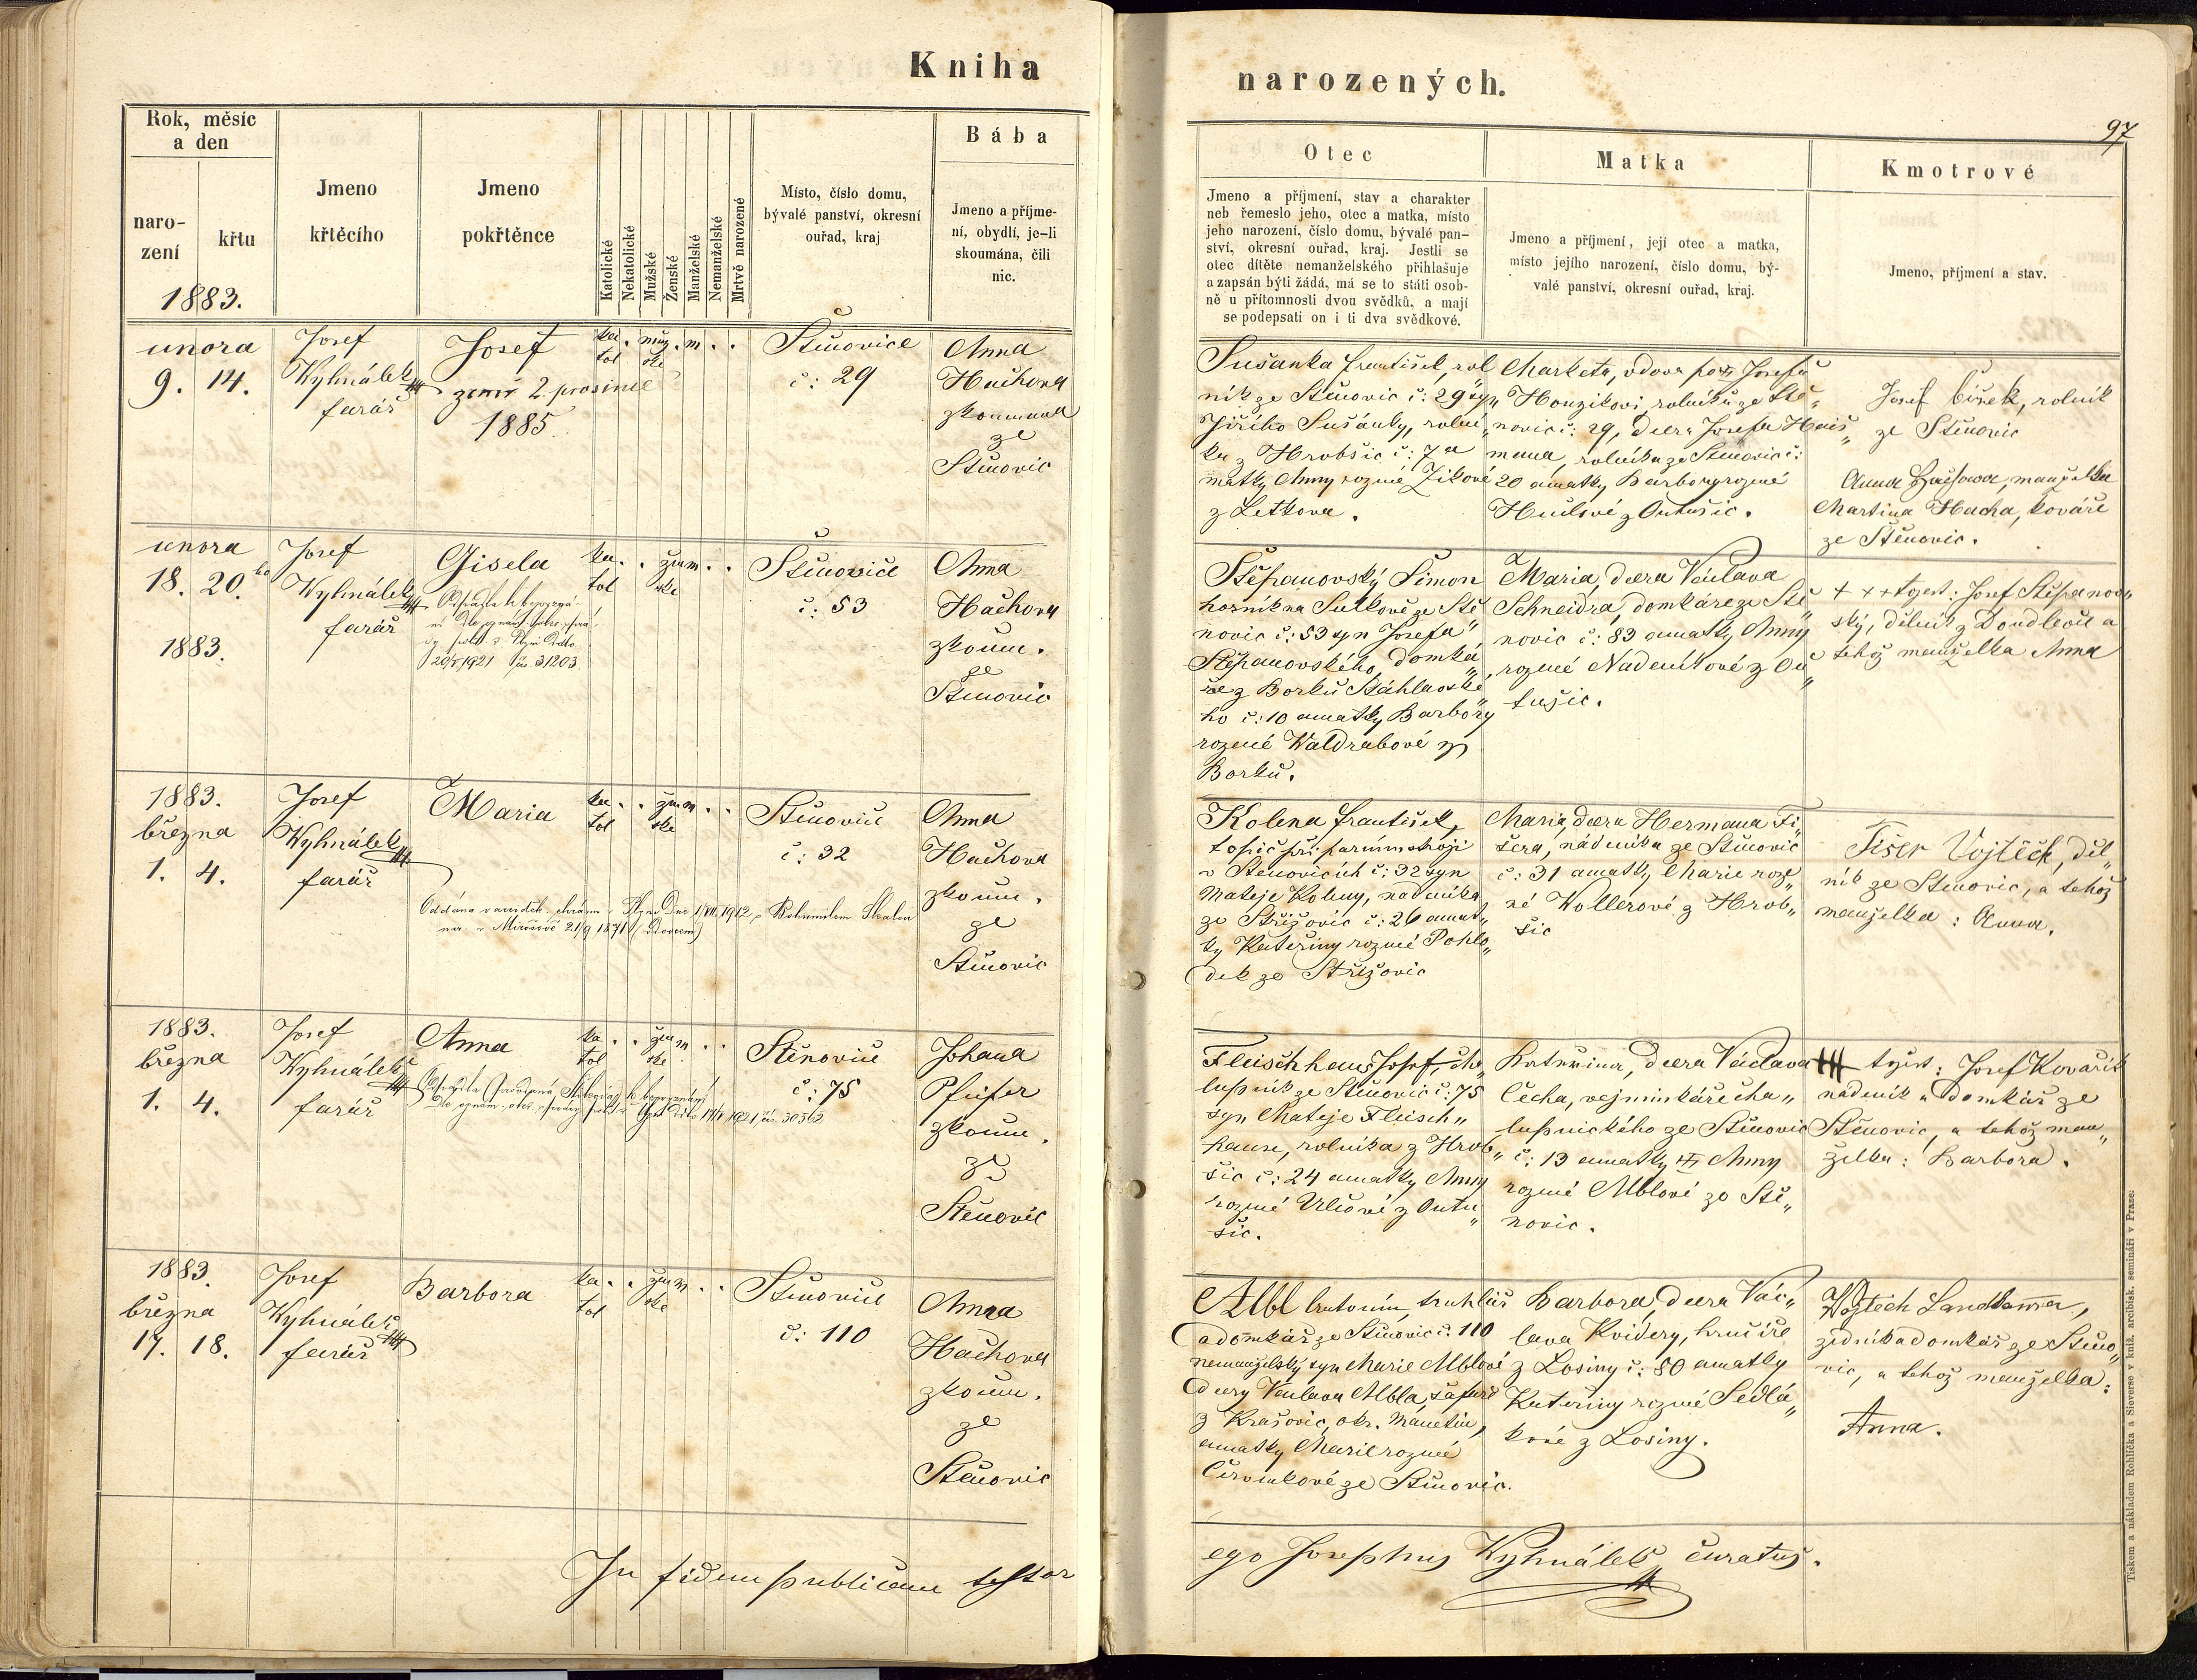 Kniha
narozených.
97
Rok, měsíc
a den
naro-
zení
křtu
1883.
Jmeno
křtěcího
Jmeno
pokřtěnce
Katolické
Nekatolické
Mužské
Ženské
Manželské
Nemanželské
Mrtvě narozené
Místo, číslo domu,
bývalé panství, okresní
ouřad, kraj
Bába
Jmeno a příjme-
ní, obydlí, je-li
skoumána, čili
nic.
Otec
Jmeno a příjmení, stav a charakter
neb řemeslo jeho, otec a matka, místo
jeho narození, číslo domu, bývalé pan-
ství, okresní ouřad, kraj. Jestli se
otec dítěte nemanželského přihlašuje
a zapsán býti žádá, má se to státi osob-
ně u přítomnosti dvou svědků, a mají
se podepsati on i ti dva svědkové.
Matka
Jmeno a příjmení, její otec a matka,
místo jejího narození, číslo domu, bý-
valé panství, okresní ouřad, kraj.
Kmotrové
Jmeno, příjmení a stav.
unora
9. 14.
Josef
Wyhnálek
farář
Josef
zemř 2. prosince
1885
ka . muž . m . .
tol ské
Štěnovice
č: 29
Anna
Hachova
zkoumaná
ze
Štěnovic
Sušanka František, rol
ník ze Štěnovic č: 29 sy„
Jiřího Sušánky, rolní„
ka z Hrobšic č: 7 a
matky Anny rozené Zikové
z Letkova.
Marketa, vdova po Josefu
Honzikovi, rolníku ze Stě„
novic č: 29, dcera Josefa Hais„
mana, rolníka ze Štěnovic č:
20 a matky Barbory rozené
z Outušic.
Josef Císek, rolník
ze Štěnovic
Anna Hachowa, manželka
Martina Hacha, kováře
ze Štěnovic.
unora
18. 20.ho
1883.
Josef
Wyhnálek
farář
Gisela
20/5 1921 čís. 31203
ka . . žen m . .
tol ske
Štěnovice
č: 53
Anna
Hachova
zkoum.
ze
Štěnovic
Štěpanovský Šimon
horník na Sulkově ze Stě
novic č: 53 syn Josefa
Štěpanovského, domká„
ře z Borku Stáhlavské
ho č: 10 a matky Barbory
rozené Waldrabové z
Borku.
Maria, dcera Václava
Schneidra, domkáře ze Stě
novic č: 83 a matky Anny
rozené Nademítové z Ou„
tušic.
+ + + tgest: Josef Stěpanov„
ský, dělník z Doudlevic a
tehož manželka Anna
1883.
března
1. 4.
Josef
Wyhnálek
farář
Maria
Oddána v arciděk. chrámu v Plzni dne 1/VII. 1912 s Bohumilem
nar. v Mirošově 21/9 1871 (vdovcem)
ka . . žen m . .
tol ske
Štěnovice
č: 32
Anna
Hachova
zkoum.
ze
Štěnovic
Kolena František,
topič při parním stroji
v Štěnovicích č: 32 syn
Mateje Koleny, nádeníka
ze Střížovic č: 26 a mat„
ky Kateřiny rozené Pohlo„
dek ze Střížovic
Maria, dcera Hermana Fi„
šera, nádeníka ze Štěnovic
č: 31 a matky Marie roze„
né Wollerové z Hrob„
šic
Fišer Vojtěch, děl„
ník ze Štěnovic, a tehož
manželka: Anna.
1883.
března
1. 4.
Josef
Wyhnálek
farář
Anna
1921, čís. 30362
ka . . žen m . .
tol ske
Štěnovice
č: 75
Johana
Pfeifer
zkoum.
ze
Štěnovic
Fleischhans Josef, cha„
lupník ze Štěnovic č: 75
syn Mateje Fleisch„
hanse, rolníka z Hrob„
šic č: 24 a matky Anny
rozené Ulčové z Outu„
šic.
Kateřina, dcera Václava
Čecha, vejminkáře cha„
lupnického ze Štěnovic
č: 13 a matky Anny
rozené Alblové ze Stě„
novic.
+++ tgest: Josef Kovařík
nádeník a domkář ze
Štěnovic, a tehož man„
želka: Barbora.
1883.
března
17. 18.
Josef
Wyhnálek
farář
Barbora
ka . . žen m . .
tol ske
Štěnovice
č: 110
Anna
Hachova
zkoum.
ze
Štěnovic
Albl Antonín, truhlář
a domkář ze Štěnovic č: 110
nemanželský syn Marie Alblové
dcery Václava Albla, šafáře
z Krašovic, okr. Manetín,
a matky Marie rozené
Červenkové ze Štěnovic.
Barbora, dcera Vác„
lava Kvídery, hrnčíře
z Losiny č: 80 a matky
Kateřiny rozené Sedlá„
kové z Losiny.
Wojtěch Landkamer,
zedník a domkář ze Štěno„
vic, a tehož manželka:
Anna.
In fidem publicam testor
ego Josephus Wyhnálek, curatus.
Tiskem a nákladem Rohlíčka a Sieverse v kníž. arcibisk. semináři v Praze.